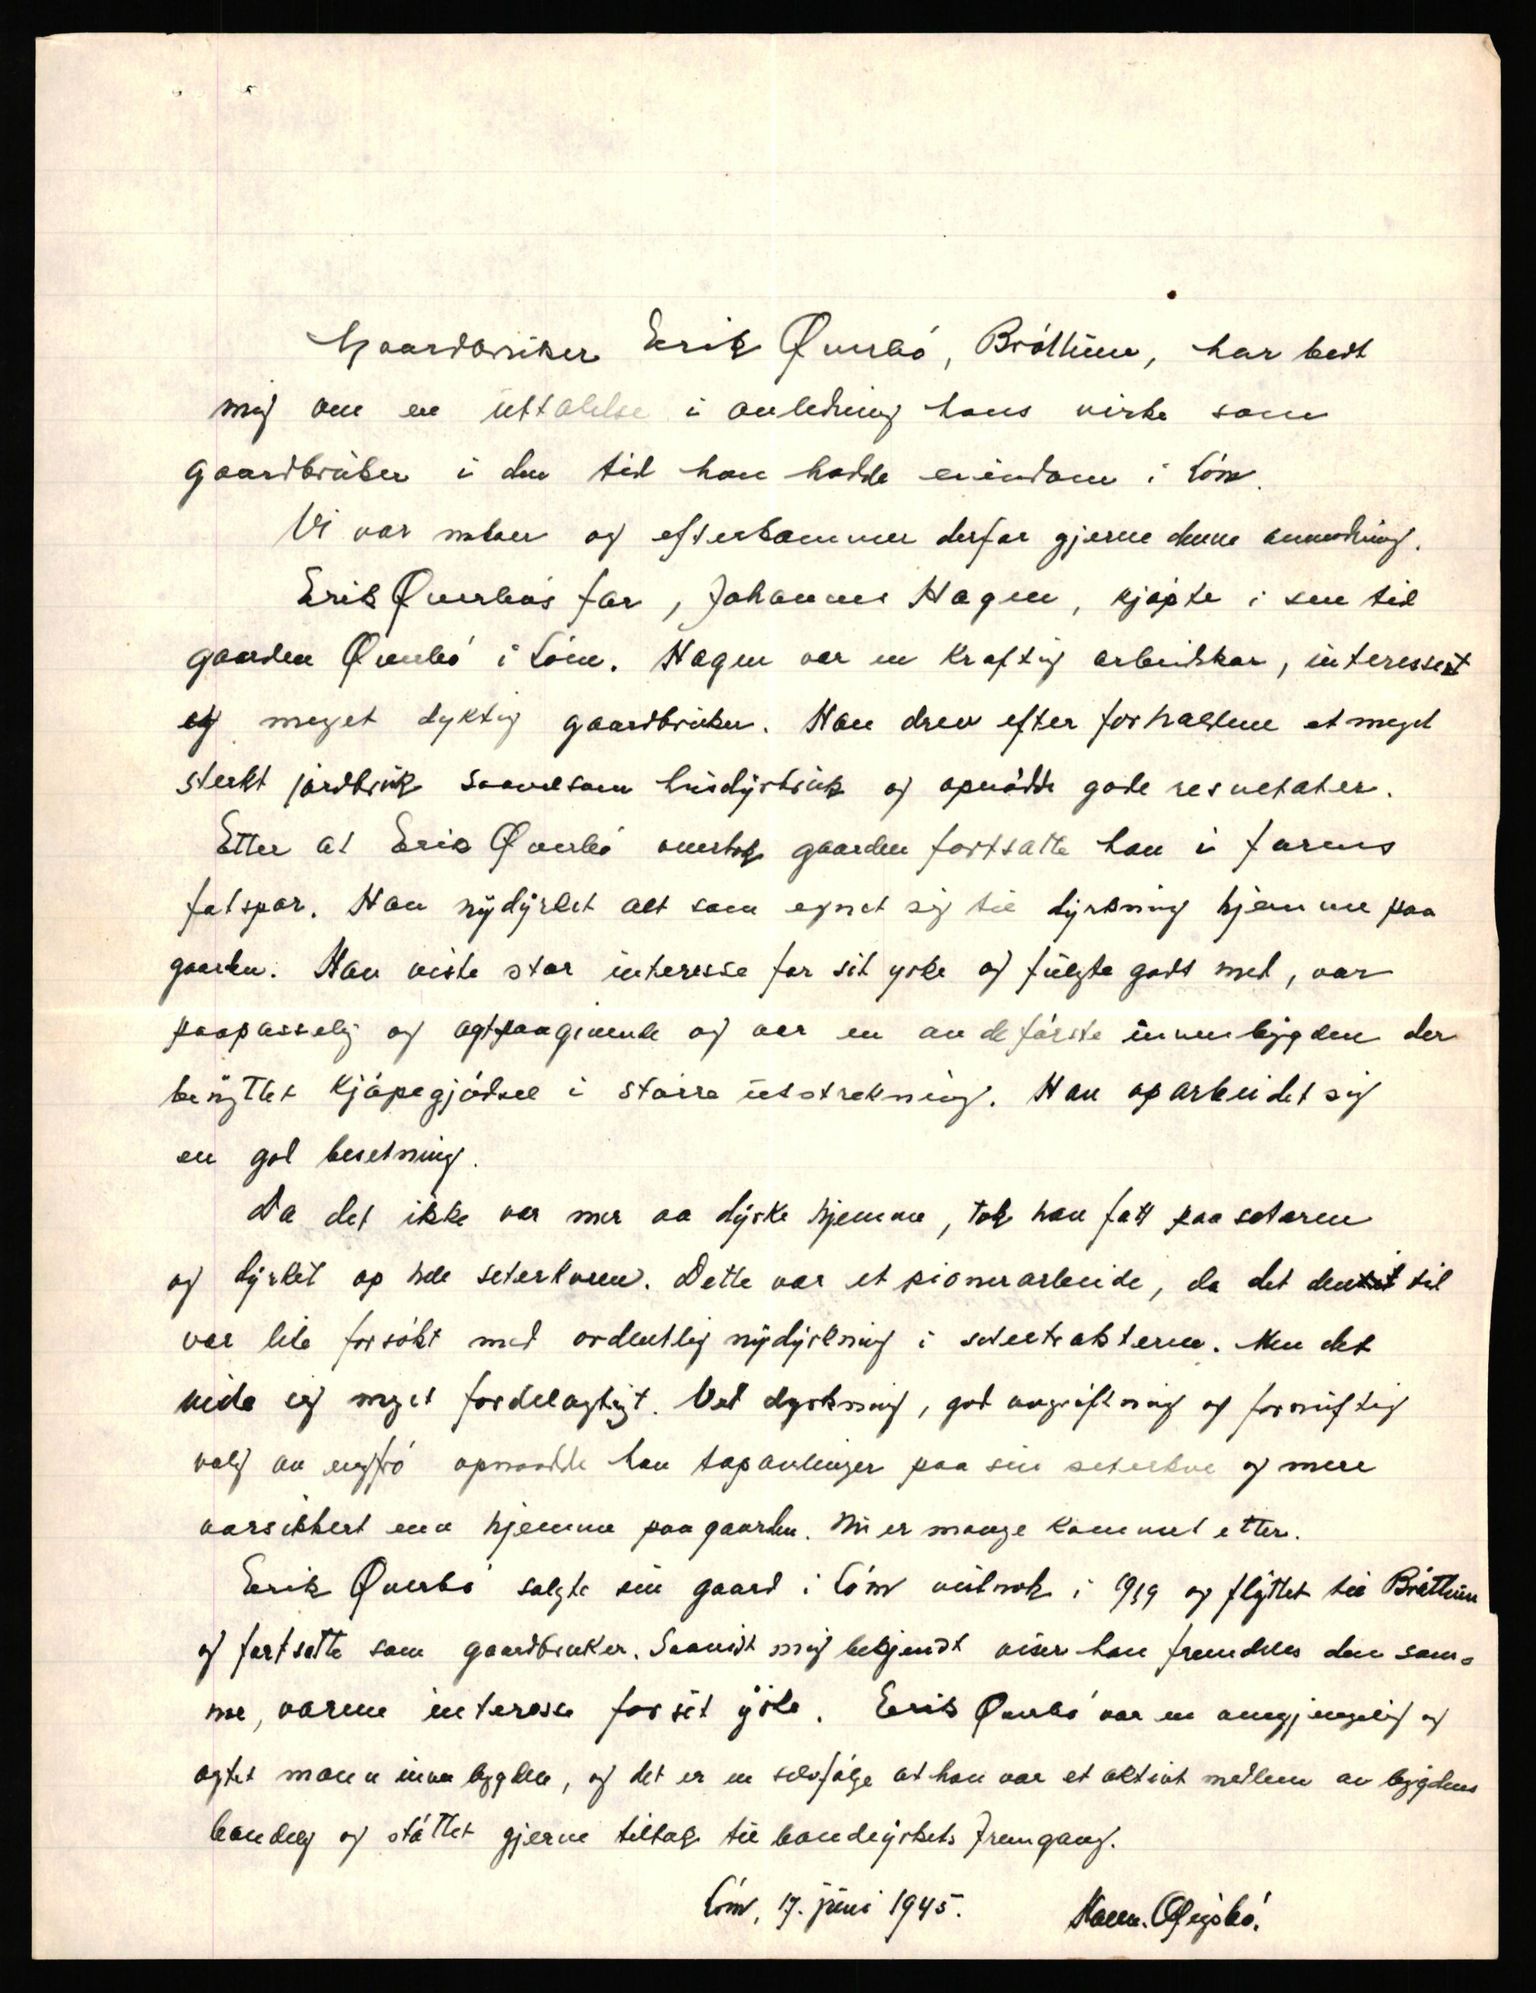 Gaardbruker Erik Øverbö, Bröttum, har bedt
mig om en uttalelse i anledning hans virke som
gaardbruker i den tid han hadde eiendom i Lom.
Vi var naboer og efterkommer derfor gjerne denne anmodning.
Erik Øverbös far, Johannes Hagen, kjöpte i sin tid
gaarden Øverbö i Lom. Hagen var en kraftig arbeidskar, interessert
og meget dyktig gaardbruker. Han drev efter forholdene et meget
sterkt jordbruk saavelsom husdyrbruk og opnådde gode resultater.
Etter at Erik Øverbö overtok gaarden fortsatte han i farens
fotspor. Han nydyrket alt som egnet sig til dyrkning hjemme paa
gaarden. Han viste stor interesse for sit yrke og fulgte godt med, var
paapasselig og agtpaagivende og var en av de förste innen bygden der
benyttet kjöpegjödsel i större utstrekning. Han oparbeidet sig
en god besetning.
Da det ikke var mer aa dyrke hjemme, tok han fatt paa seteren
og dyrket op hele seterkveen. Dette var et pionerarbeide, da det dentid til
var lite forsökt med ordentlig nydyrkning i setertrakterne. Men det
viste sig meget fordelagtigt. Ved dyrkning, god avgröftning og fornuftig
valg av engfrö opnaadde han topavlinger paa sin seterkve og mere
aarsikkert enn hjemme paa gaarden. Nu er mange kommet etter.
Erik Øverbö solgte sin gaard i Lom vistnok i 1939 og flyttet til Bröttum
og fortsatte som gaardbruker. Saavidt mig bekjendt viser han fremdeles den sam-
me, varme interesse for sit yrke. Erik Øverbö var en omgjengelig og
agtet mann innen bygden, og det er en selvfölge at han var et aktivt medlem av bygdens
bondelag og stöttet gjerne tiltak til bondeyrkets fremgang.
Lom, 17. juni 1945.
Hans. Øigsbö.